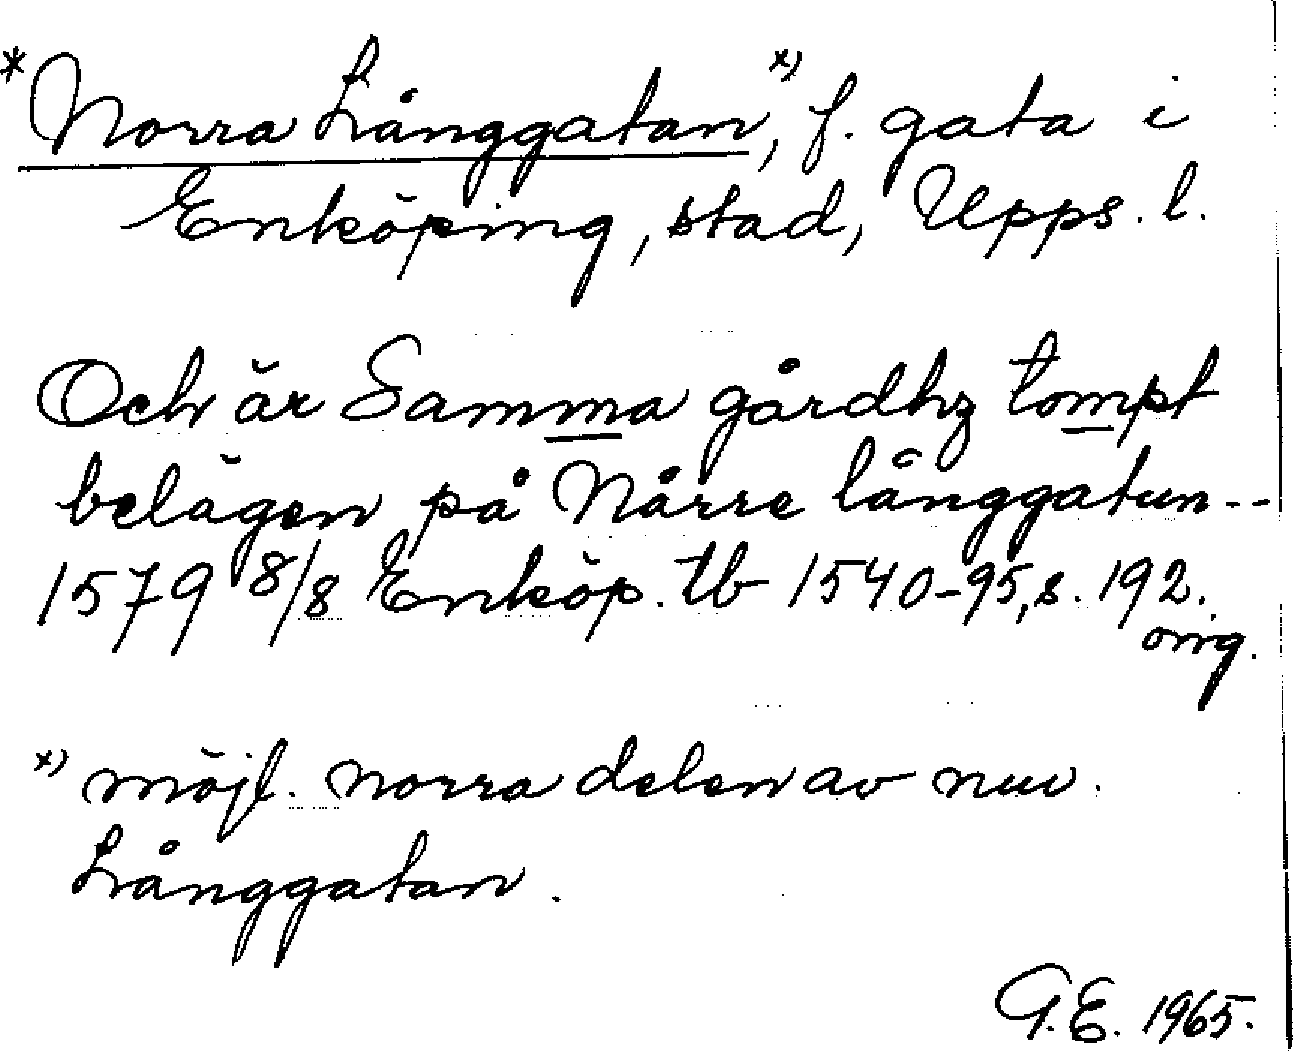 *Norra Långgatan,ˣ⁾ f. gata i
Enköping, stad, Upps. l.
Och är Samma gårdhz tompt
belägen på Nårre långgatun--
1579 8/8 Enköp. tb 1540-95, s. 192.
orig.
ˣ⁾ möjl. norra delen av nuv.
Långgatan.
G.E. 1965.